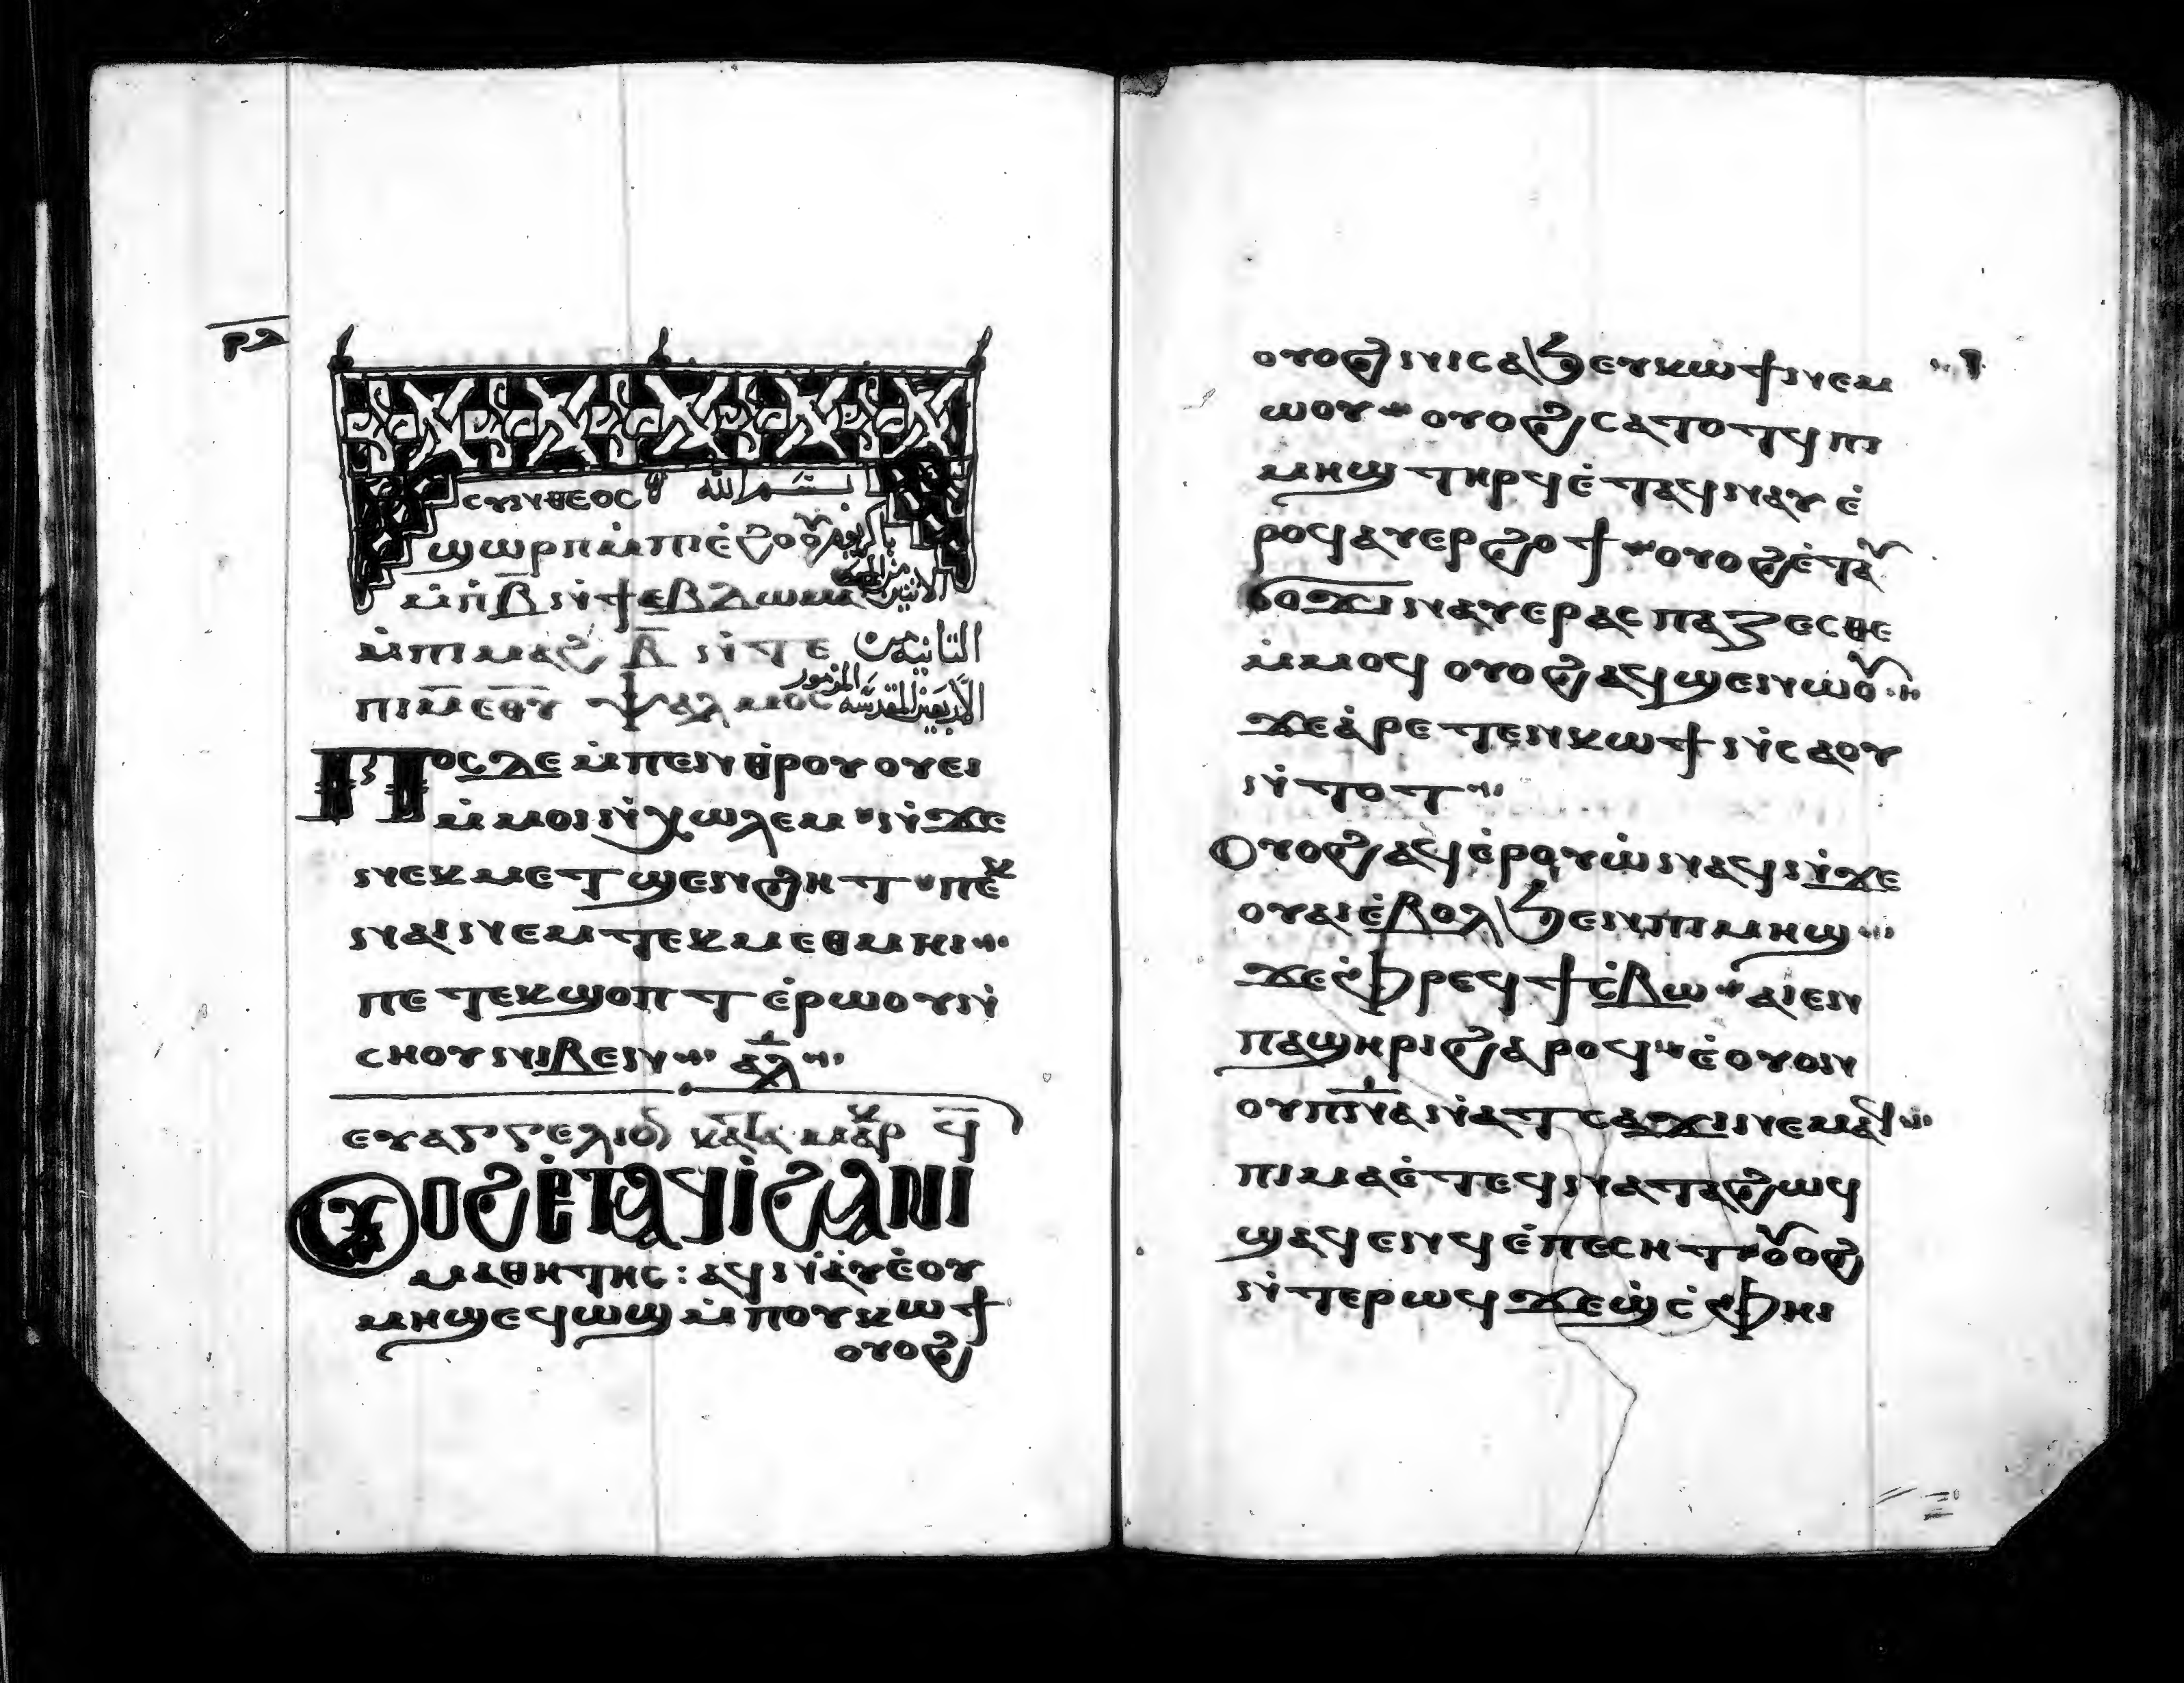 ⲣⲗ
ⲥⲩⲛⲑⲉⲟⲥ بسم الله
ϣⲱⲣⲡ ⲙ̇ⲡⲓⲉ̇ϩⲟⲟⲩ
ⲙ̇ⲡⲃ̅ ⲛ̇ϯⲉⲃⲇⲱⲙⲁⲥ الاثنين
ⲙ̇ⲡⲓⲙⲁϩ ⲃ̅ ⲛ̇ⲧⲉ الثانيه من
ⲡⲓⲙ̅ ⲉⲑⲩ ⲯⲁⲗⲙⲟⲥ الاربعين المقدسه المزمور
Ⲡⲟ̅ⲥ̅ ⲇⲉ ⲙ̇ⲡⲉⲛⲑ̇ⲣⲟⲩⲟⲩⲉⲓ
ⲙ̇ⲙⲟⲓ ⲛ̇ⲭⲱⲗⲉⲙ ⲛ̇ϫⲉ
ⲛⲉⲕⲙⲉⲧϣⲉⲛϩⲏⲧ ⲡⲉⲕ
ⲛⲁⲓ ⲛⲉⲙ ⲧⲉⲕⲙⲉⲑⲙⲏⲓ
ⲡⲉⲧⲉⲕϣⲟⲡⲧ ⲉ̇ⲣⲱⲟⲩ ⲛ̇
ⲥⲏⲟⲩ ⲛⲓⲃⲉⲛ ⲁⲗ
ⲉⲩⲁⲅⲅⲉⲗⲓⲟⲛ ⲕⲁⲧⲁ ⲙⲁⲣⲕ ϥ̅
Ⲟⲩⲟϩ ⲉ̇ⲧⲁϥⲓ̇ ϩⲁ ⲛⲓ
ⲙⲁⲑⲏⲧⲏⲥ : ⲁϥⲛ̇ⲁⲩ ⲉ̇ⲟⲩ
ⲙⲏϣ ⲉϥⲱϣ ⲙ̇ⲡⲟⲩⲕⲱϯ
ⲟⲩⲟϩ
ⲟⲩⲟϩ ⲛⲓⲥⲁϧ ⲉⲩⲕⲱϯ ⲛⲉⲙ
ⲱⲟⲩ ⲟⲩⲟϩ ⲥⲁⲧⲟⲧϥ ⲡⲓ
ⲙⲏϣ ⲧⲏⲣϥ ⲉ̇ⲧⲁϥⲛⲁⲩ ⲉ̇
ⲣⲟϥ ⲁⲩⲉⲣϩⲟϯ ⲟⲩⲟϩ ⲉ̇ⲧⲁⲩ
ϭⲟϫⲓ ⲛⲁⲩⲉⲣⲁⲥⲡⲁⲍⲉⲥⲑⲉ
ⲙ̇ⲙⲟϥ ⲟⲩⲟϩ ⲁϥϣⲉⲛⲱⲟⲩ
ϫⲉ ⲁ̇ⲣⲉⲧⲉⲛⲕⲱϯ ⲛ̇ⲥⲁ ⲟⲩ
ⲛ̇ⲧⲟⲧ
Ⲟⲩⲟϩ ⲁϥⲉ̇ⲣⲟⲩⲱ̇ ⲛⲁϥ ⲛ̇ϫⲉ
ⲟⲩⲁⲓ ⲉ̇ⲃⲟⲗϧⲉⲛ ⲡⲓⲙⲏϣ
ϫⲉ ⲫ̇ⲣⲉϥϯⲥ̇ⲃⲱ ⲁⲓⲉⲛ
ⲡⲁϣⲏⲣⲓ ϩⲁⲣⲟϥ ⲉ̇ⲟⲩⲟⲛ
ⲟⲩⲡⲛ̅ⲁ ⲛ̇ⲁⲧⲥⲁϫⲓ ⲛⲉⲙⲁϥ
ⲡⲓⲙⲁ ⲉ̇ⲧⲉϥⲛⲁⲧⲁϩⲱϥ
ϣⲁϥⲉⲛϥ ⲉ̇ⲡⲉⲥⲏⲧ ⲟⲩⲟϩ
ⲛ̇ⲧⲉⲣⲱϥ ϫⲉϣ̇ ⲥ̇ⲫⲏⲓ